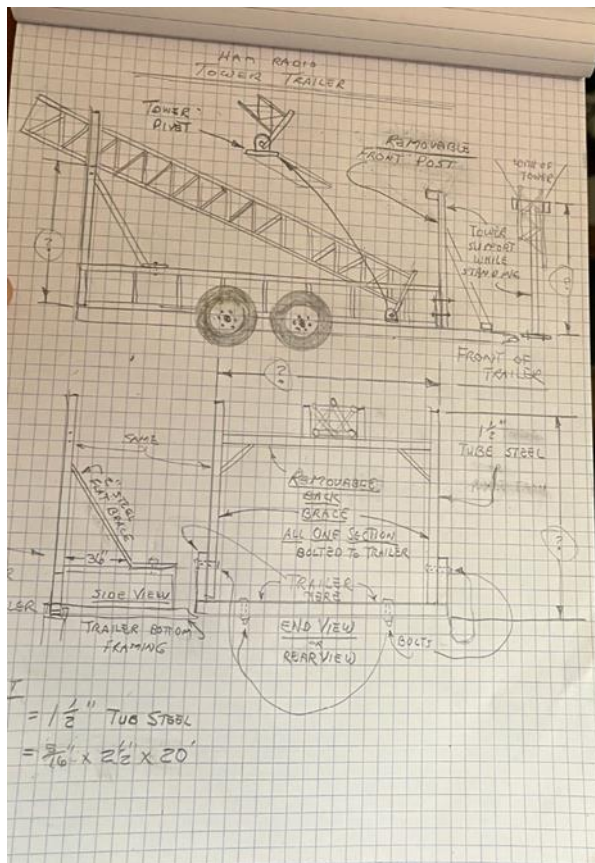 HAM RADIO
TOWER TRAILER
TOWER
PIVET
REMOVABLE
FRONT POST
TOWER
TOWER
SUPPORT
WHILE
STANDING
?
?
FRONT OF
TRAILER
?
SAME
2" STEEL
FLAT BRACE
REMOVABLE
BACK
BRACE
ALL ONE SECTION
BOLTED TO TRAILER
1 1/2"
TUBE STEEL
?
36"
SIDE VIEW
TRAILER
HERE
TRAILER BOTTOM
FRAMING
END VIEW
OR
REAR VIEW
BOLTS
= 1 1/2" TUB STEEL
= 3/16" x 2 1/2" x 20'